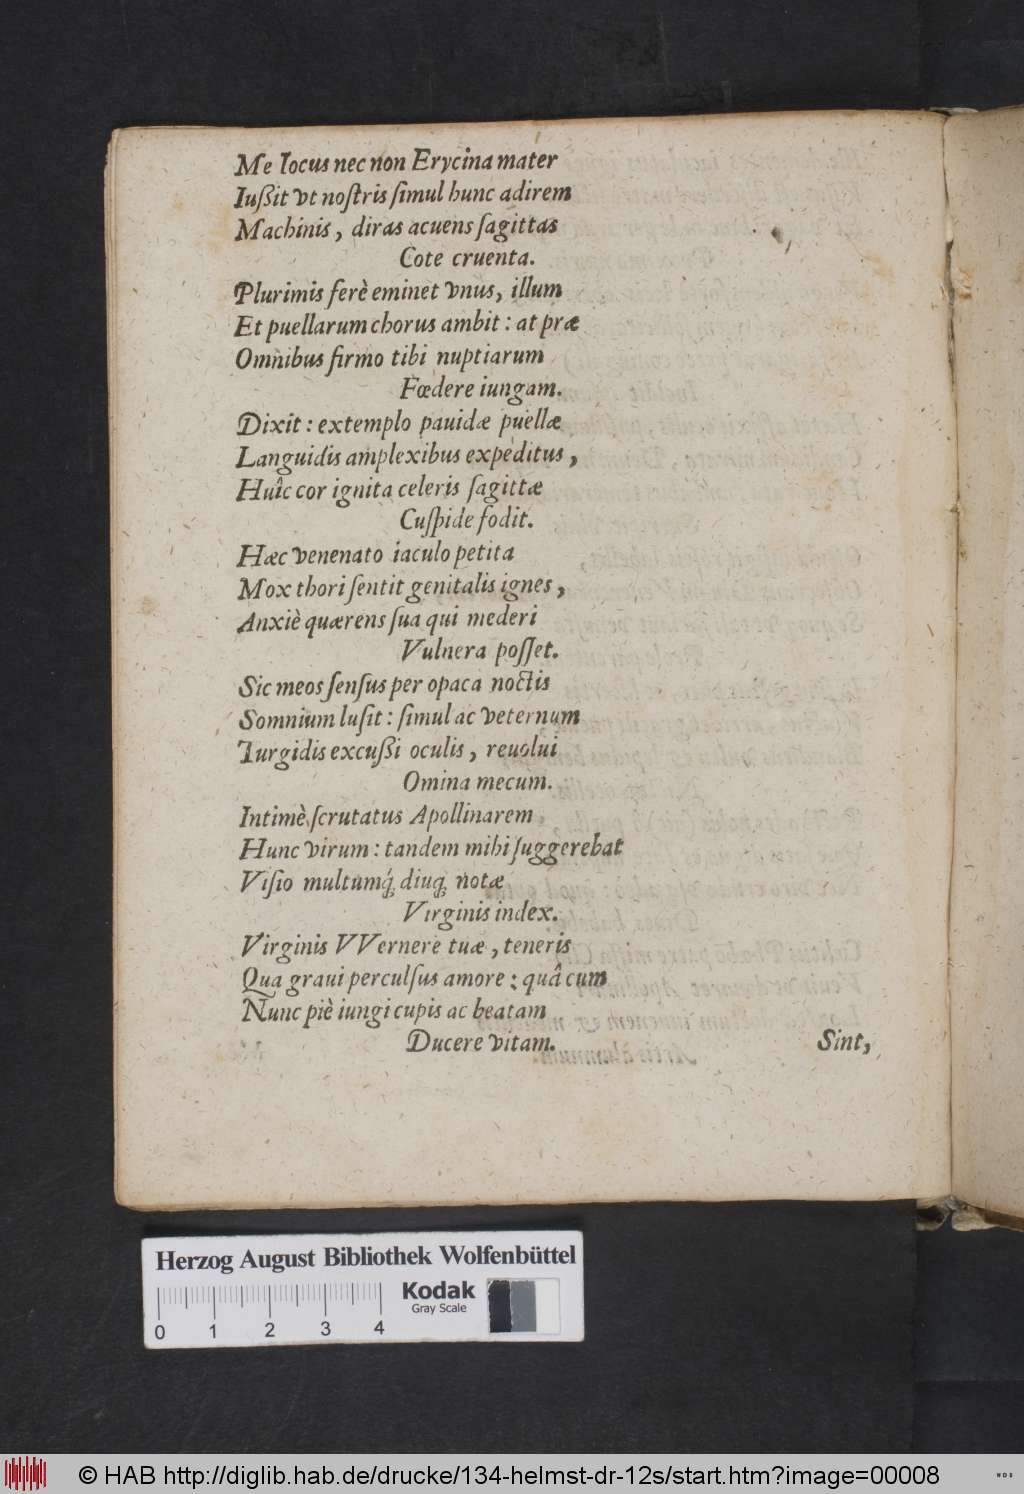 Me Iocus nec non Erycina mater
Iußit vt noſtris ſimul hunc adirem
Machinis, diras acuens ſagittas
Cote cruenta.
Plurimis ferè eminet vnus, illum
Et puellarum chorus ambit: at præ
Omnibus firmo tibi nuptiarum
Fœdere iungam.
Dixit: extemplo pauidæ puellæ
Languidis amplexibus expeditus,
Huîc cor ignita celeris ſagittæ
Cuſpide fodit.
Hæc venenato iaculo petita
Mox thori ſentit genitalis ignes,
Anxiè quærens ſua qui mederi
Vulnera poſſet.
Sic meos ſenſus per opaca noctis
Somnium luſit: ſimul ac veternum
Turgidis excußi oculis, reuolui
Omina mecum.
Intimè ſcrutatus Apollinarem
Hunc virum: tandem mihi ſuggerebat
Viſio multumq́; diuq́; notæ
Virginis index.
Virginis VVernere tuæ, teneris
Qua graui perculſus amore: quâ cum
Nunc piè iungi cupis ac beatam
Ducere vitam.
Sint,
Herzog August Bibliothek Wolfenbüttel
Kodak
Gray Scale
0 1 2 3 4
© HAB http://diglib.hab.de/drucke/134-helmst-dr-12s/start.htm?image=00008